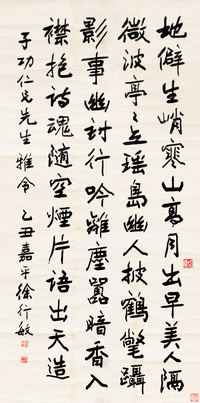 地僻生峭寒山高月出早美人隔
微波亭亭立瑶島幽人披鶴氅躡
影事幽討行吟離塵囂暗香入
襟抱詩魂随空煙片語出天造
子功仁兄先生雅令 乙丑嘉平徐行敏